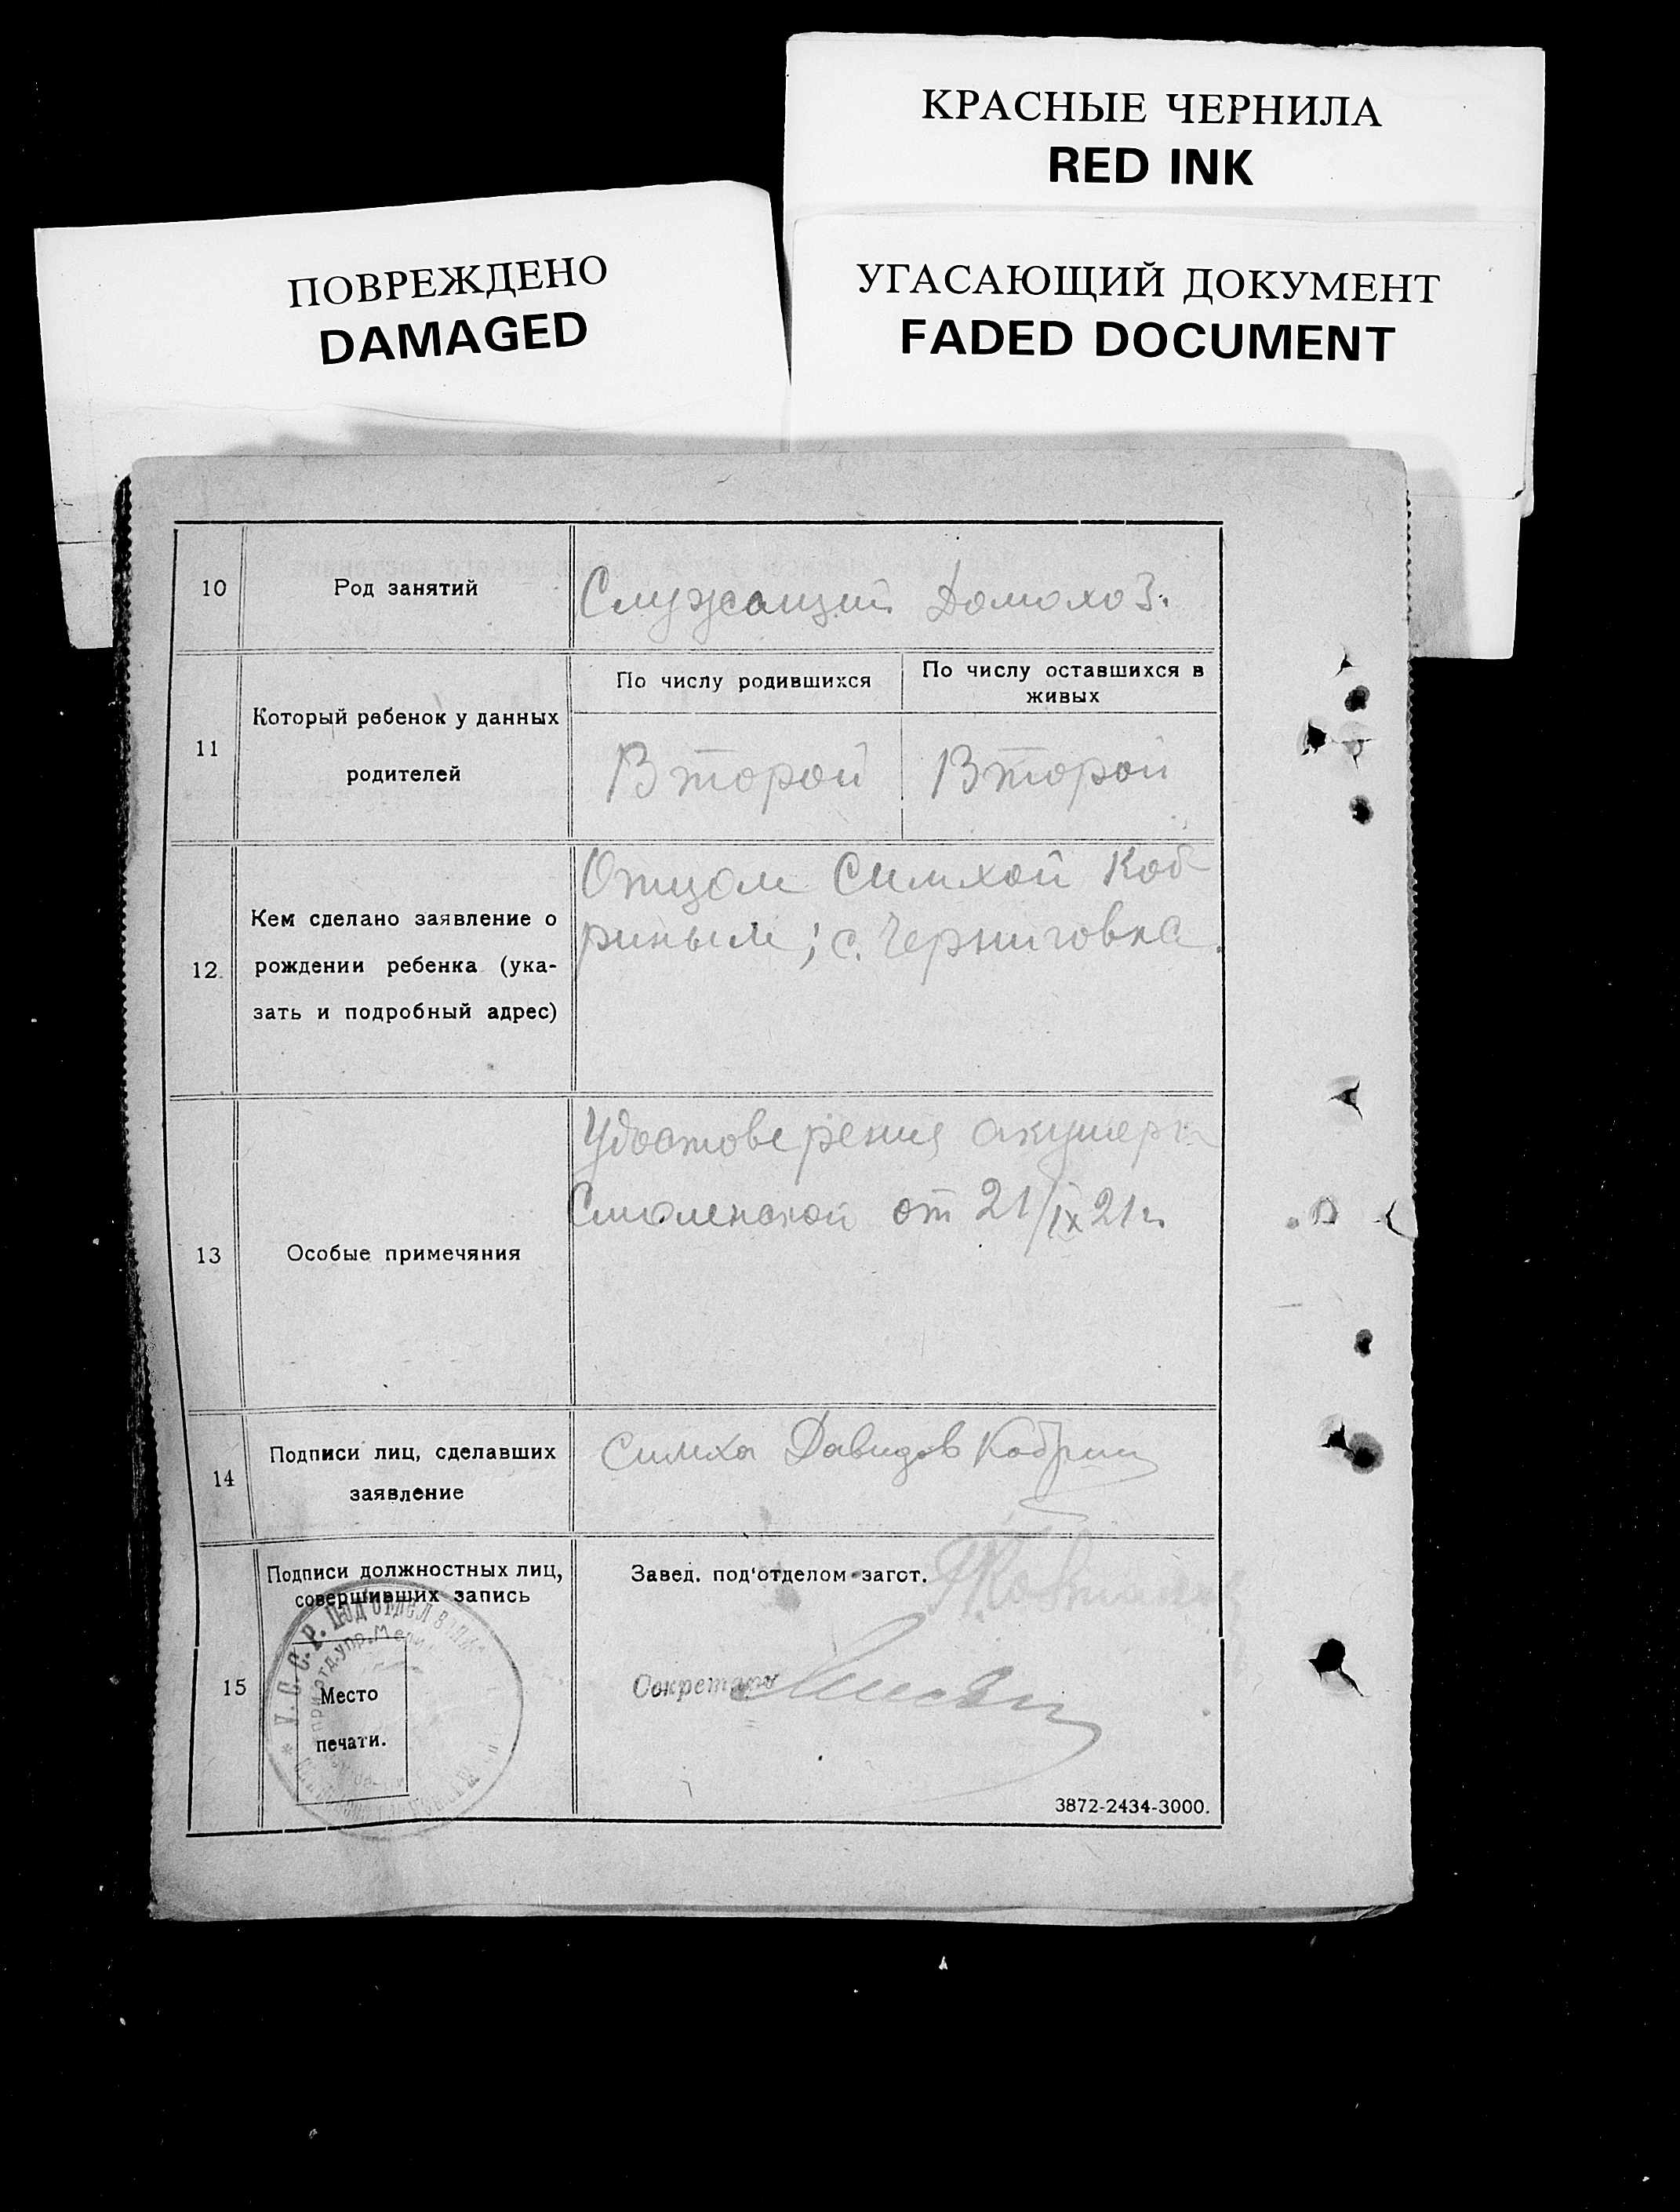 КРАСНЫЕ ЧЕРНИЛА
RED INK
ПОВРЕЖДЕНО
DAMAGED
УГАСАЮЩИЙ ДОКУМЕНТ
FADED DOCUMENT
10
Род занятий
Служащий Домохоз.
11
Который ребенок у данных
родителей
По числу родившихся
По числу оставшихся в
живых
Второй
Второй
12
Кем сделано заявление о
рождении ребенка (ука-
зать и подробный адрес)
Отцом Симхой Коб-
риным; с. Черниговка.
13
Особые примечяния
Удостоверения акушерки
Смоленской от 21/IX 21 г.
14
Подписи лиц, сделавших
заявление
Симха Давидов Кобрин
15
Подписи должностных лиц,
совершивших запись
У. С. С. Р. Под'отдел
отд. упр.
Место
печати.
Завед. под'отделом загст.
Секретарь
3872-2434-3000.